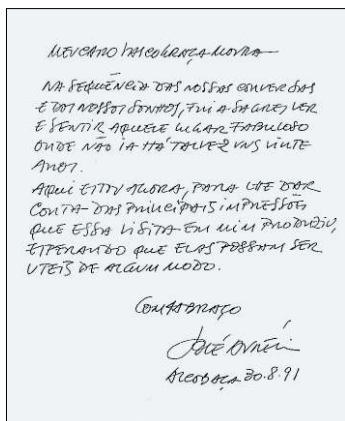 MEU CARO VASCO GRAÇA MOURA
NA SEQUÊNCIA DAS NOSSAS CONVERSAS
E DOS NOSSOS SONHOS, FUI A SAGRES VER
E SENTIR AQUELE LUGAR FABULOSO
ONDE NÃO IA HÁ TALVEZ UNS VINTE
ANOS.
AQUI ESTOU AGORA, PARA LHE DAR
CONTA DAS PRINCIPAIS IMPRESSÕES
QUE ESSA VISITA EM MIM PRODUZIU,
ESPERANDO QUE ELAS POSSAM SER
UTEIS DE ALGUM MODO.
COM ABRAÇO
JOSÉ AURÉLIO
ALCOBAÇA 30.8.91